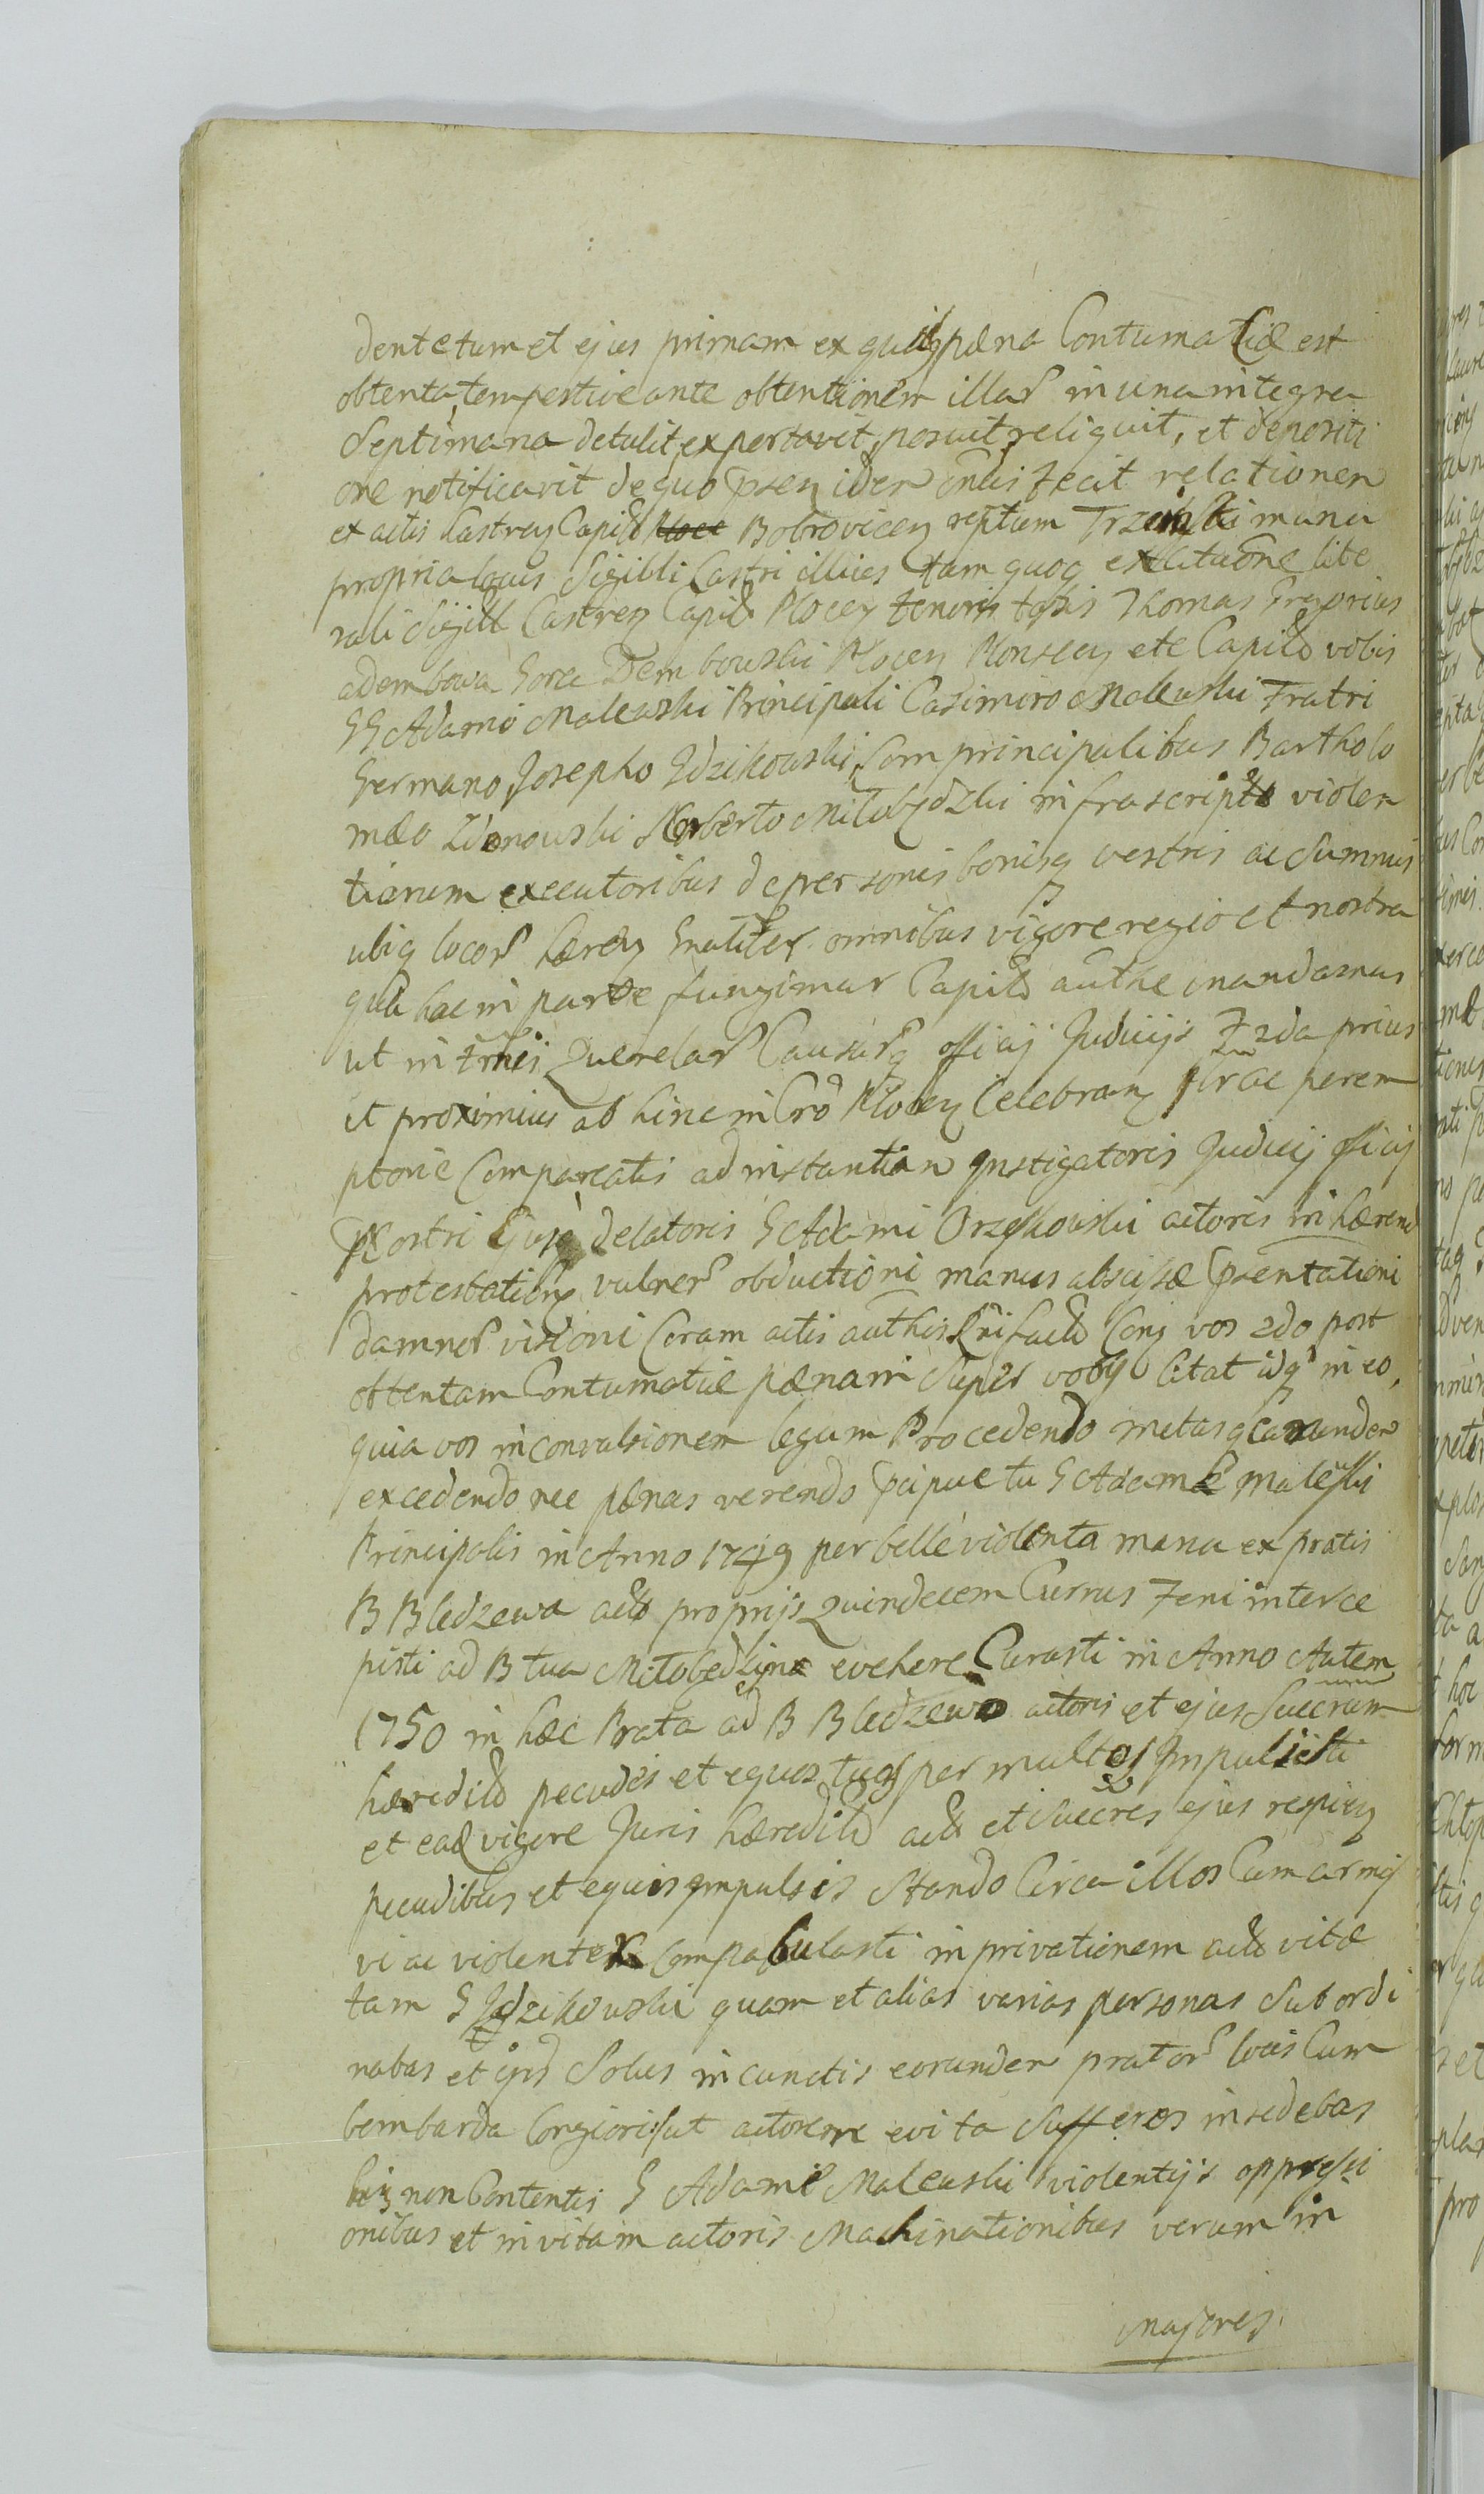 dentetum et ejus primam ex quibus pæna Contumatiæ est
obtenta, tempestive ante obtentionem illar in una integra
Septimana detulit, exportavit, posuit, reliquit, et depositi
one notificavit de quo psen iden mnis fecit relationem
ex actis Castren Capit Bobrovicen reptum manu
propria locus Sigilli Castri illius tam quoq ex Citaone lite
rali Sigill Castren Capit Plocen tenoris tqsis Thomas Grzegorius
a Dembowa Gora Dembowski Plocen Plonscen etc Capit vobis
GG Adamo Malewski Principali Casimiro Malewski Fratri
Germano, Josepho Idzikowski, Comprincipalibus Bartholo
mæo Zdonowski Norberto Milobędzki infrascripta violen
tiarum executoribus de personis bonisq vestris ac Summis
ubiq locor hæren gnaliter omnibus vigore regio et nostra
qua hac in parte fungimur Capit authe mandamus
ut in tmis Querelar Causarq officij Judicijs F 2da prius
et proximius ab hinc in Cro Plocen Celebran perem
ptorie Compareatis ad instantian Instigatoris Judicij officij
Nostri Ejusq delatoris G Adami Orzeszkowski actoris inhæren
protestation vulner obductioni manus abscissæ psentationi
damnor visioni Coram actis authis fact Cong vos 2do post
obtentam Contumatiæ pænam Super vobis Citat idq in eo,
quia vos in convulsionem legum Procedendo metasq earunden
excedendo nec pænas verendo pcipue tu G Adame Malewski
Principalis in Anno 1749 per belle violenta manu ex pratis
B Bledzewa act proprijs Quindecem Currus Feni interce
pisti ad B tua Milobędzyna evehere Curasti in Anno Autem
1750 in hæc Prata ad B Bledzewo actoris et ejus Succrum
hæredit pecudes et equos tuos per multos Impulisti
et ead vigore Juris hæredit act et Succres ejus respicien
pecudibus et equis impulsis Stando Circa illos Cum armis
vi ac violenter Compabulasti in privationem act vitæ
tam G Idzikowski quam et alias varias personas Subordi
nabas et ipse Solus in cunctis eorunden prator locis Cum
bombarda longiori ut actorem e vita Sufferes insedebas
his non Contentis G Adame Malewski violentijs oppressi
onibus et in vitam actoris Machinationibus verum in
majores